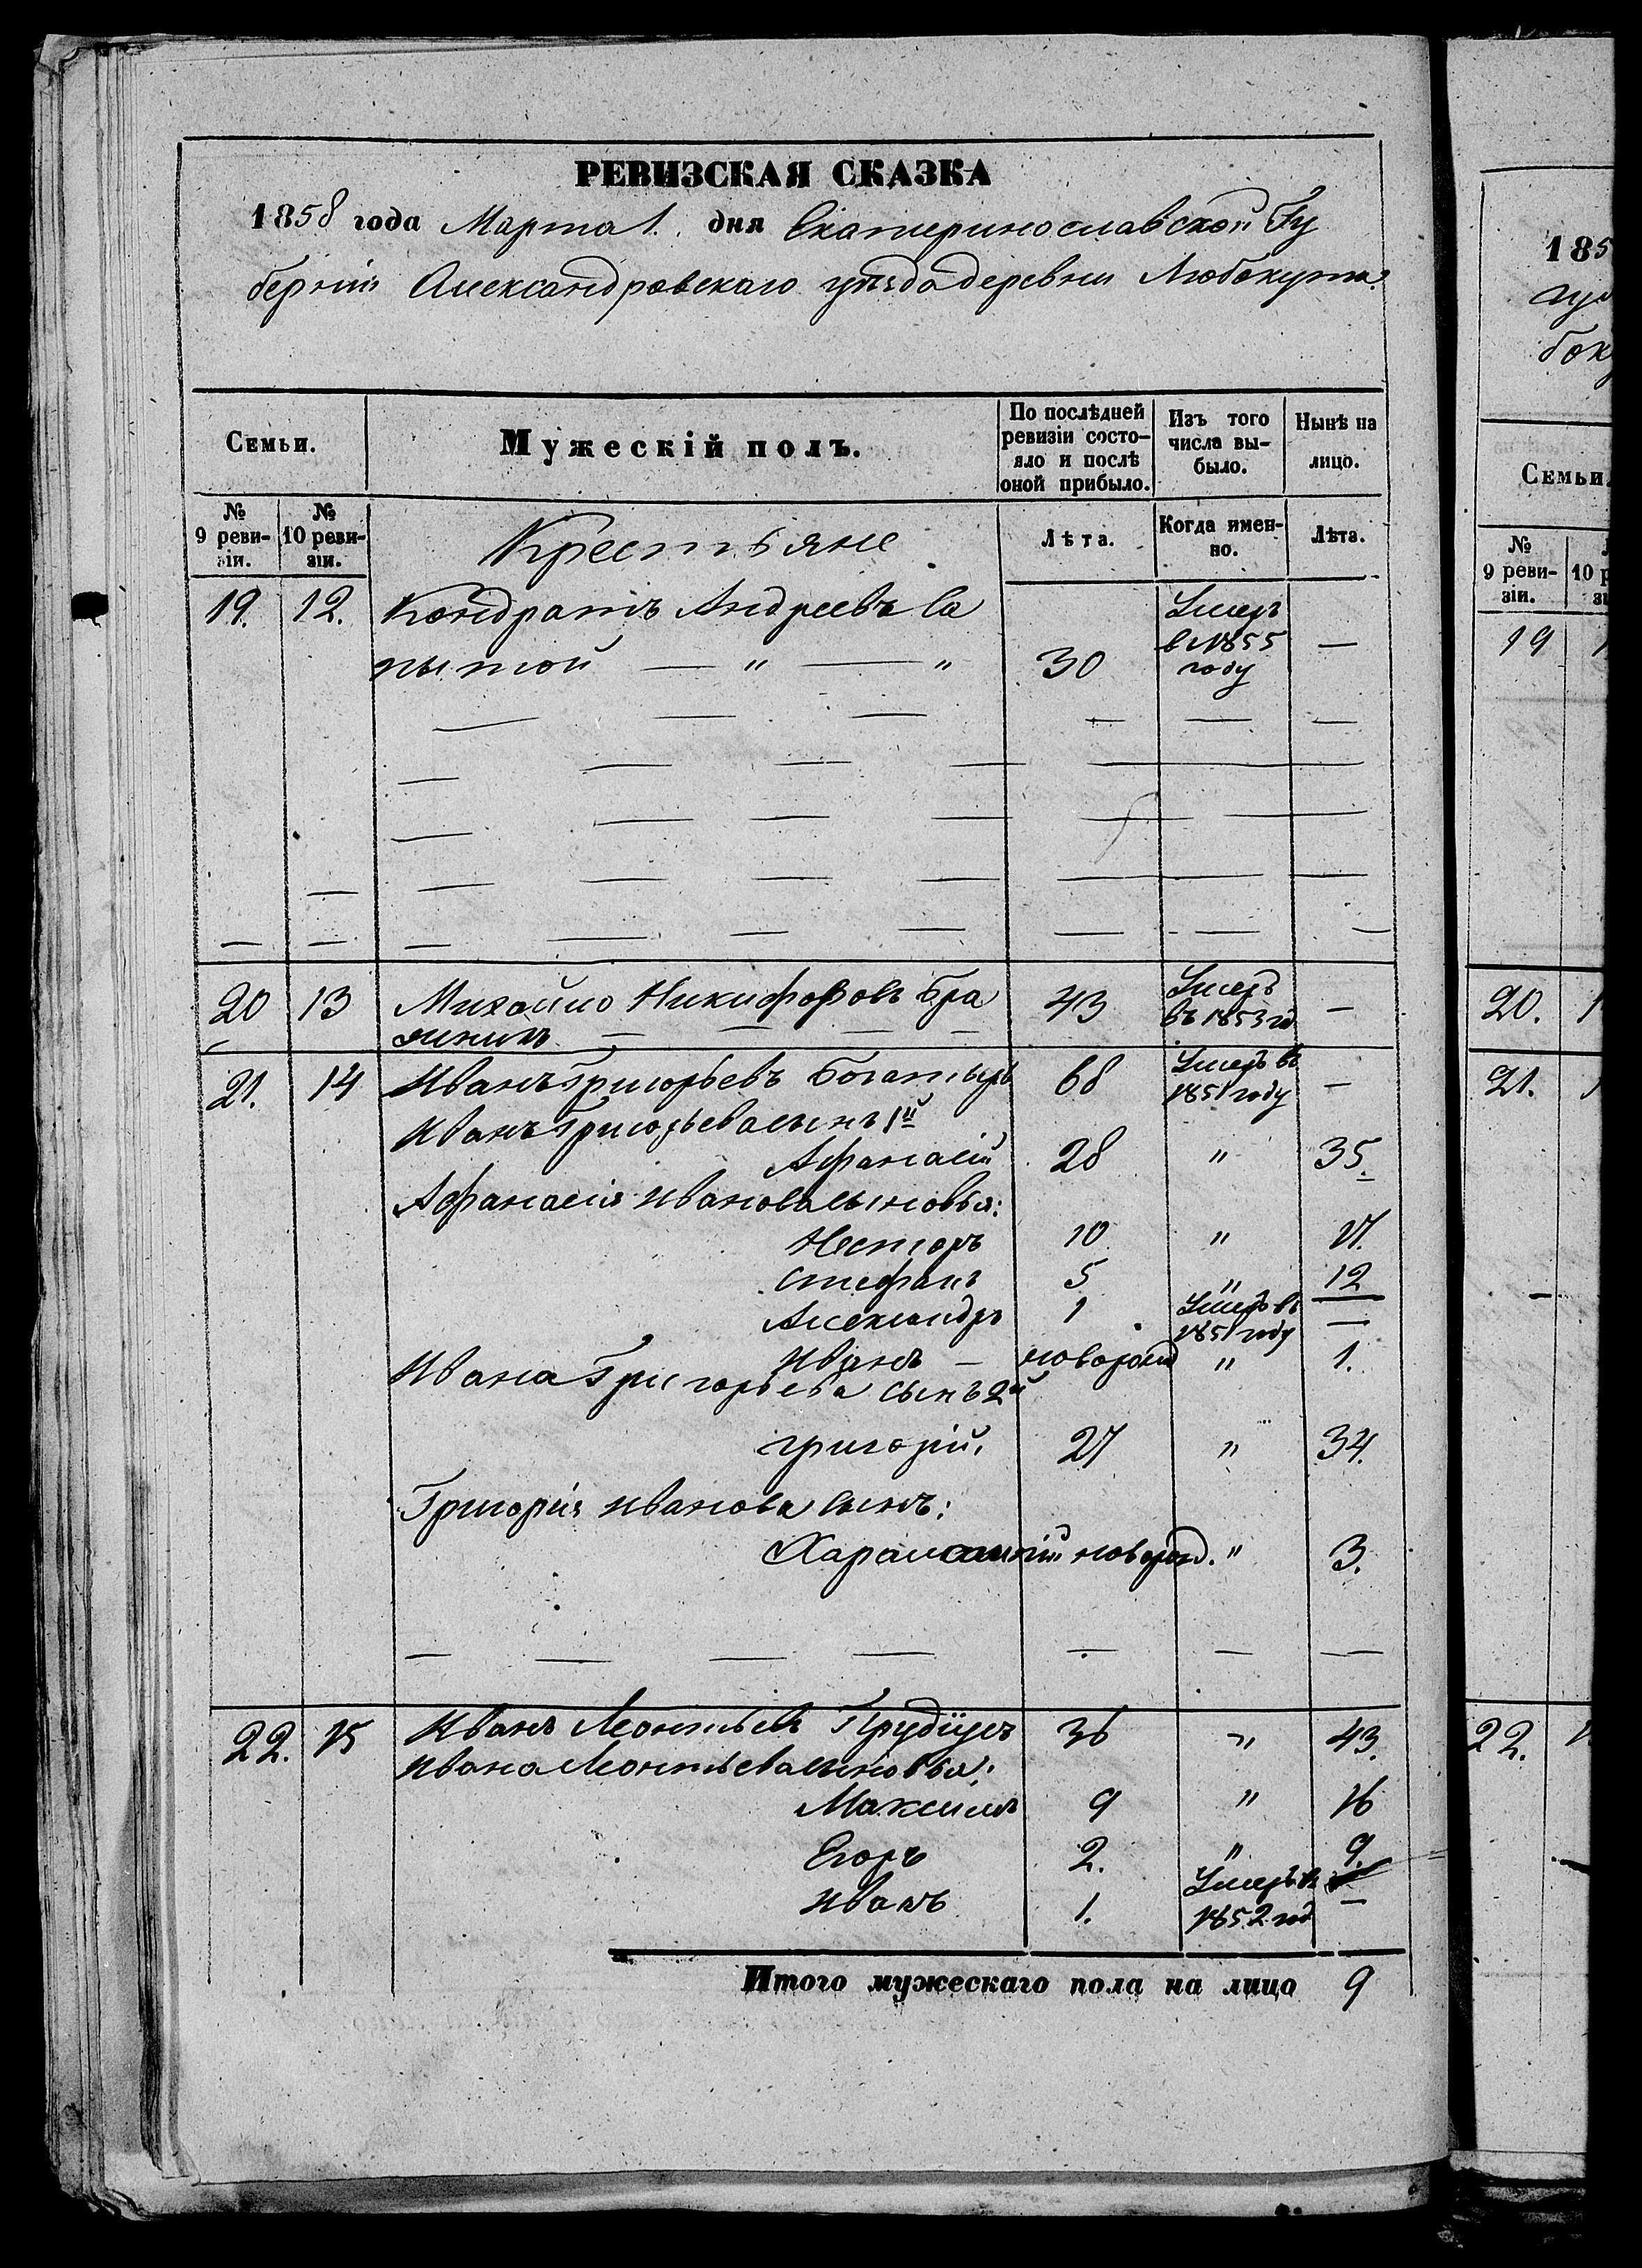 РЕВИЗСКАЯ СКАЗКА
1858 года Марта 1. дня Екатеринославской Гу
берніи Александровскаго уѣзда деревни Любокута.
Семьи. Мужескій полъ. По послѣдней ревизіи состо- яло и послѣ оной прибыло. Изъ того числа вы- было. Нынѣ на лицо.
№ 9 реви- зіи. № 10 реви- зіи. Крестьяне Лѣта. Когда имен- но. Лѣта.
19. 12. Кондратъ Андреевъ Са Умеръ
пытой — " — " 30 в 1855 —
году
20 13 Михайло Никифоровъ Бра 43 Умеръ въ 1853 го —
21. 14 Иванъ Григорьевъ Богатырь 68 Умеръ въ 1851 году —
Иванъ Григорьева сынъ 1й
Афанасій 28 " 35.
Афанасія Иванова сыновья:
Несторъ 10 " 17.
Стефанъ 5 " 12
Александръ 1 Умеръ въ 1851 году —
Иванъ — новорожд " 1.
Ивана Григорьева сынъ 2й
Григорій. 27 " 34.
Григорія Иванова сынъ:
новорожд. " 3.
22. 15 Иванъ Леонтьевъ 36 " 43.
Ивана Леонтьева сыновья:
Максимъ 9 " 16
Егоръ 2. " 9.
Иванъ 1. Умеръ в 1852 год —
Итого мужескаго пола на лицо 9
185
бок
Семьи.
№ 9 реви- зіи. 10
19
20.
21.
22.